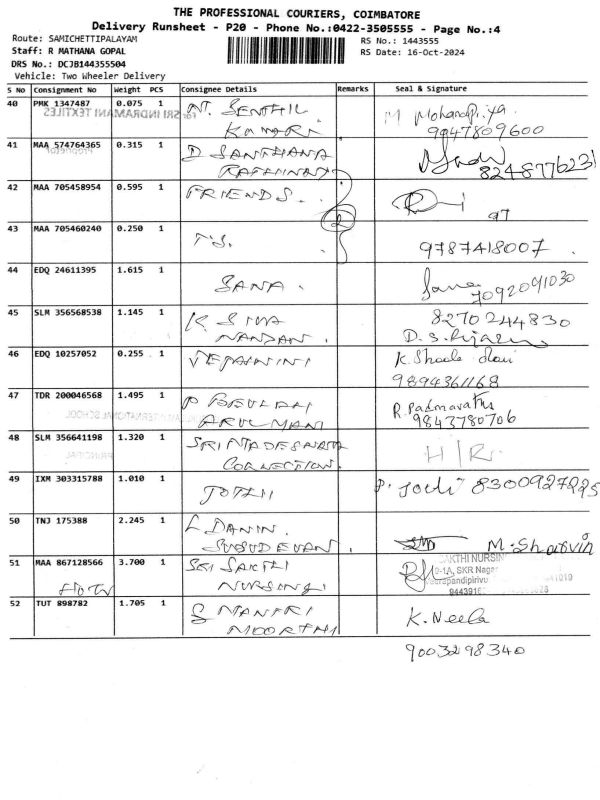 THE PROFESSIONAL COURIERS, COIMBATORE
Delivery Runsheet - P20 - Phone No.:0422-3505555 - Page No.:4
Route: SAMICHETTIPALAYAM
RS No.: 1443555
Staff: R MATHANA GOPAL
RS Date: 16-Oct-2024
DRS No.: DCJB144355504
Vehicle: Two Wheeler Delivery
S No Consignment No Weight PCS Consignee Details Remarks Seal & Signature
40 PMK 1347487 0.075 1 SENTHIL M Mohanapriya
SRI INDRAMANI TEXTILES
KUMARI 9947809600
41 MAA 574764365 0.315 1 D SANTHANA
8248776231
42 MAA 705458954 0.595 1 FRIENDS.
97
43 MAA 705460240 0.250 1 T.S. 9787418007
44 EDQ 24611395 1.615 1 SANA. 7092091030
45 SLM 356568538 1.145 1 K SIVA 8270244830
NANDAN.
46 EDQ 10257052 0.255 1 K. Shoala
9894361168
47 TDR 200046568 1.495 1 R. Padmavathy
INTERNATIONAL SCHOOL
9843780706
48 SLM 356641198 1.320 1 H/R.
PRINCIPAL
CONNECTION.
49 IXM 303315788 1.010 1 JOTHI P. Jothi 8300927225
50 TNJ 175388 2.245 1 L DANIN. M. Sharvin
51 MAA 867128566 3.700 1 SRI SAKTHI SAKTHI NURSIN
SKR Nagar
NURSING.
52 TUT 898782 1.705 1 K. Neela
MOORTHI
9003298340